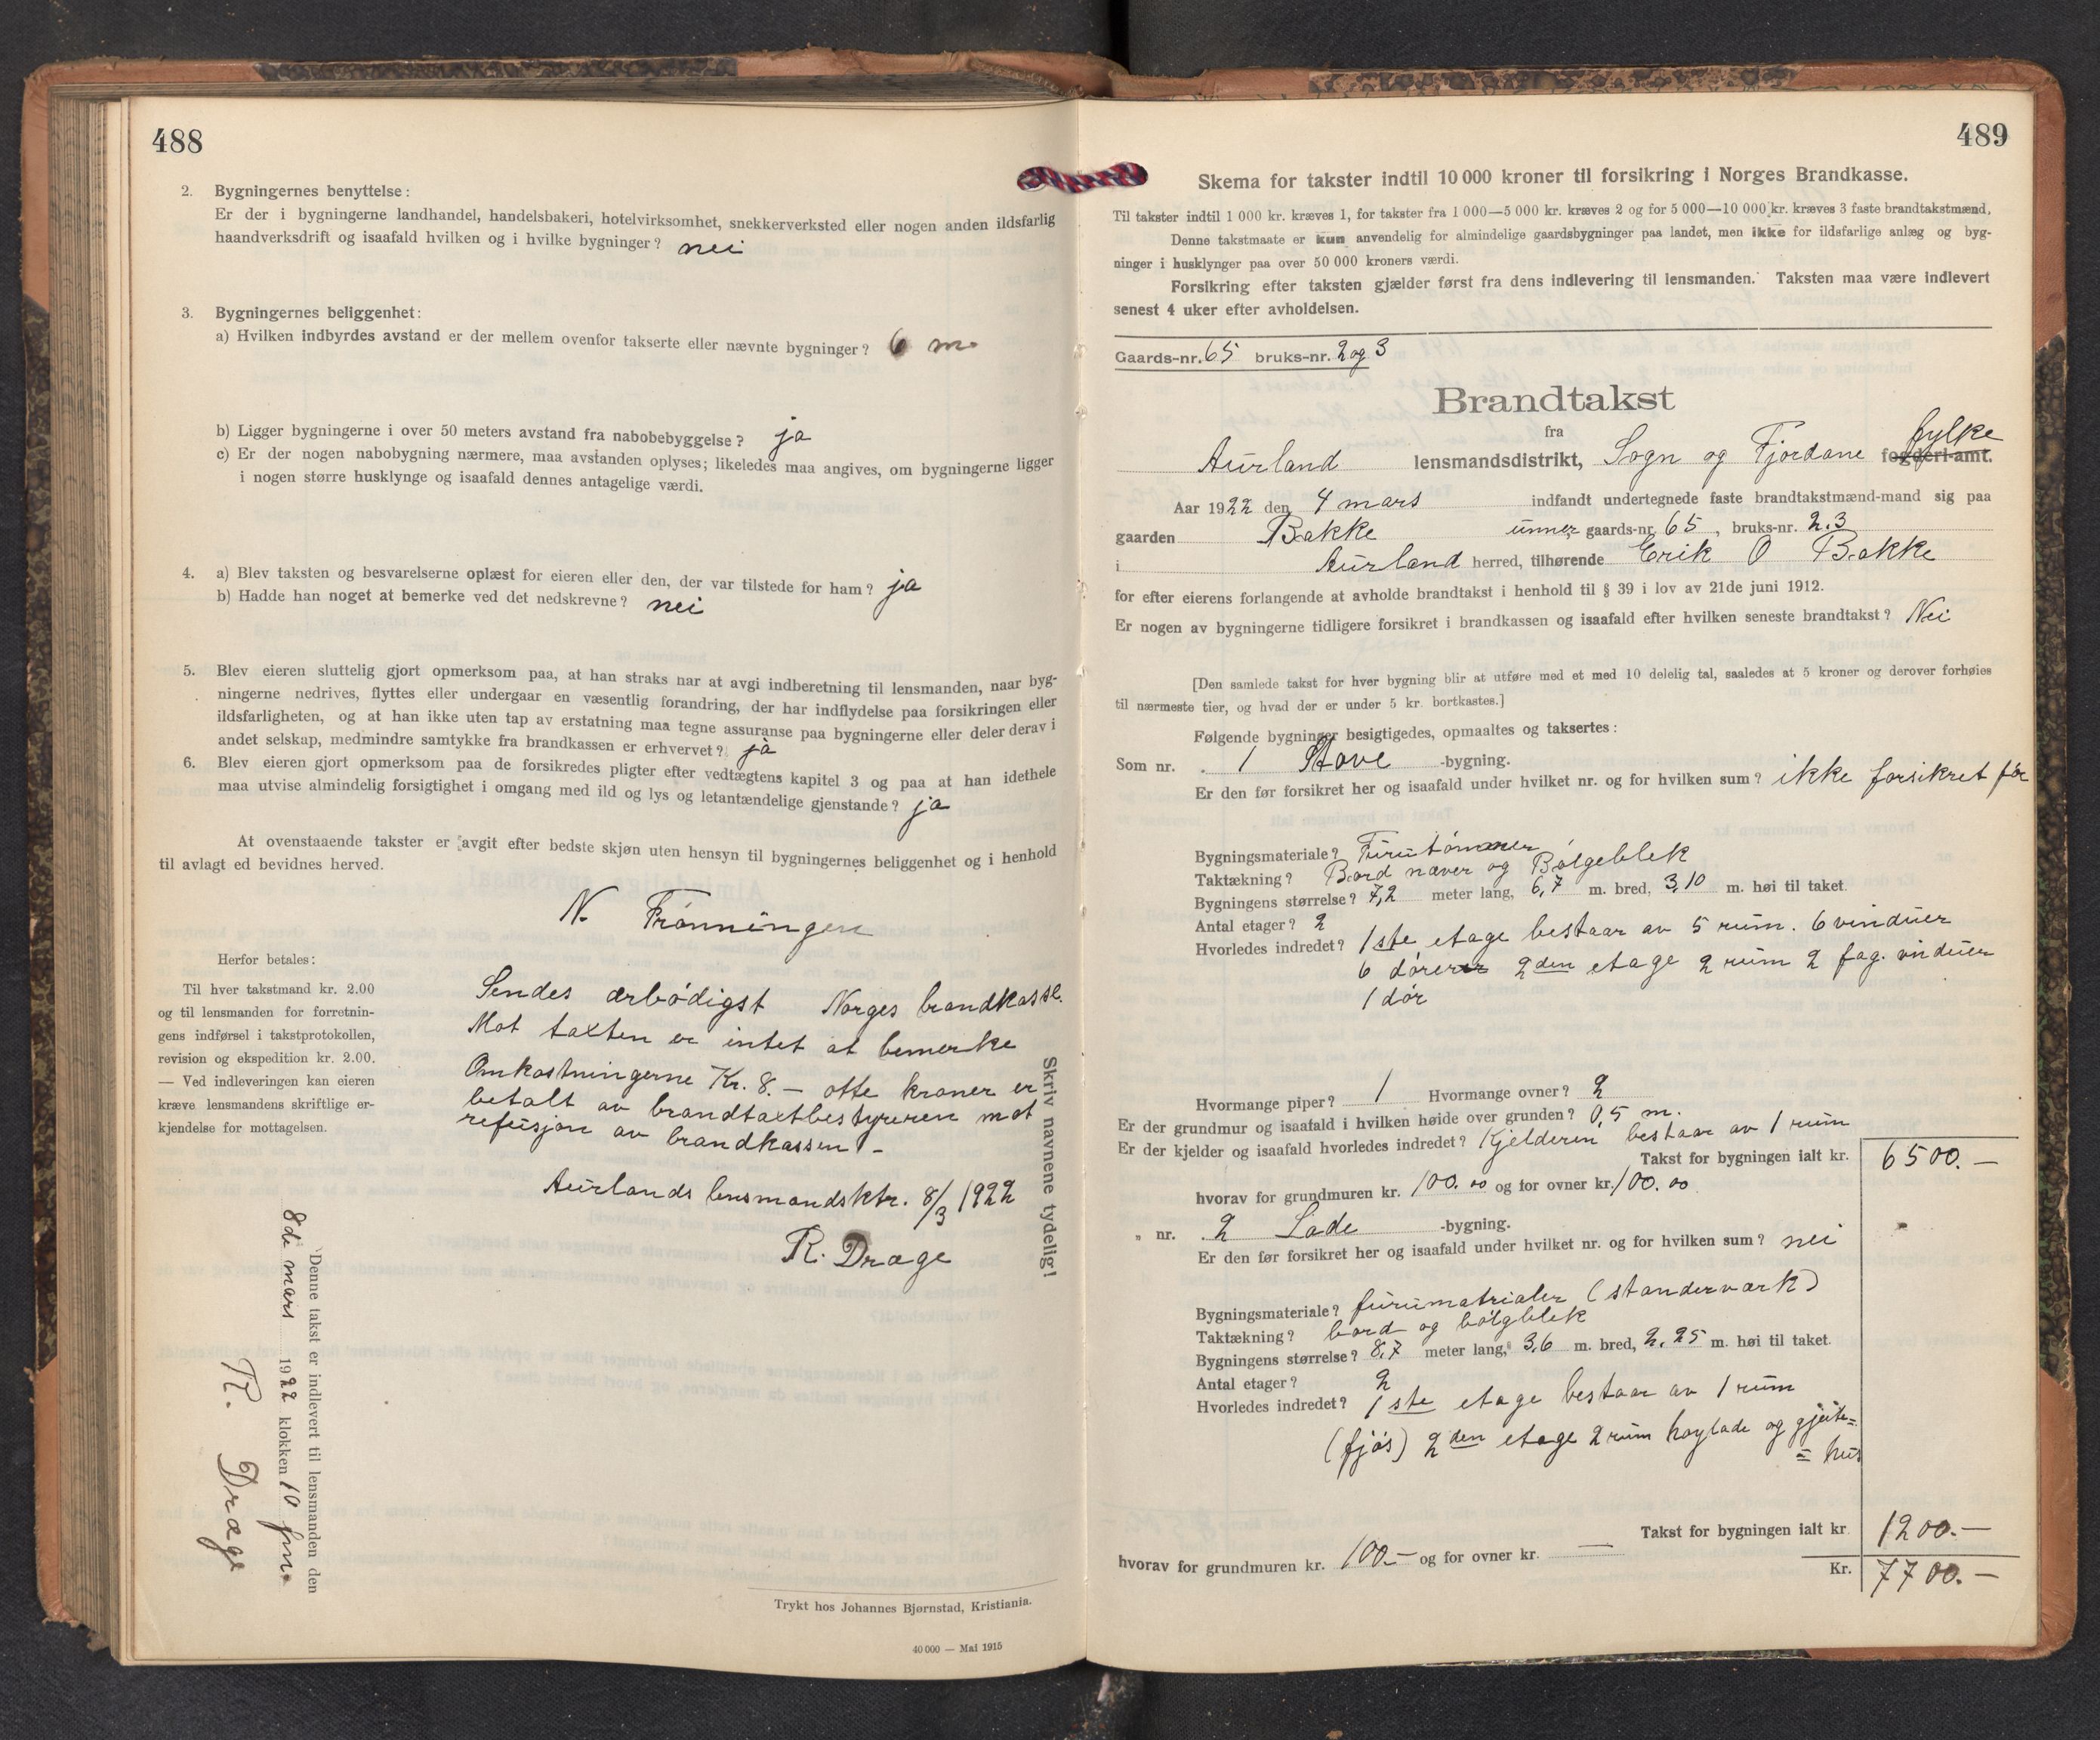 488
2. Bygningernes benyttelse:
Er der i bygningerne landhandel, handelsbakeri, hotelvirksomhet, snekkerverksted eller nogen anden ildsfarlig
haandverksdrift og isaafald hvilken og i hvilke bygninger? nei
3. Bygningernes beliggenhet:
a) Hvilken indbyrdes avstand er der mellem ovenfor takserte eller nævnte bygninger? 6 m.
b) Ligger bygningerne i over 50 meters avstand fra nabobebyggelse? ja
c) Er der nogen nabobygning nærmere, maa avstanden oplyses; likeledes maa angives, om bygningerne ligger
i nogen større husklynge og isaafald dennes antagelige værdi.
4. a) Blev taksten og besvarelserne oplæst for eieren eller den, der var tilstede for ham? ja
b) Hadde han noget at bemerke ved det nedskrevne? nei
5. Blev eieren sluttelig gjort opmerksom paa, at han straks har at avgi indberetning til lensmanden, naar byg-
ningerne nedrives, flyttes eller undergaar en væsentlig forandring, der har indflydelse paa forsikringen eller
ildsfarligheten, og at han ikke uten tap av erstatning maa tegne assuranse paa bygningerne eller deler derav i
andet selskap, medmindre samtykke fra brandkassen er erhvervet? ja
6. Blev eieren gjort opmerksom paa de forsikredes pligter efter vedtægtens kapitel 3 og paa at han idethele
maa utvise almindelig forsigtighet i omgang med ild og lys og letantændelige gjenstande? ja
At ovenstaaende takster er avgit efter bedste skjøn uten hensyn til bygningernes beliggenhet og i henhold
til avlagt ed bevidnes herved.
N. Frønningen
Herfor betales:
Til hver takstmand kr. 2.00
og til lensmanden for forretnin-
gens indførsel i takstprotokollen,
revision og ekspedition kr. 2.00.
— Ved indleveringen kan eieren
kræve lensmandens skriftlige er-
kjendelse for mottagelsen.
Sendes ærbødigst Norges brandkasse.
Mot taxten er intet at bemerke
Omkostningerne Kr. 8.— otte kroner er
betalt av brandtaxtbestyreren mot
refusjon av brandkassen. -
Aurlands lensmandsktr. 8/3 1922
R. Dræge
Skriv navnene tydelig!
Denne takst er indlevert til lensmanden den
8de mars 1922 klokken 10 fm.
R. Dræge
Trykt hos Johannes Bjørnstad, Kristiania.
40 000 — Mai 1915
489
Skema for takster indtil 10 000 kroner til forsikring i Norges Brandkasse.
Til takster indtil 1 000 kr. kræves 1, for takster fra 1 000—5 000 kr. kræves 2 og for 5 000—10 000 kr. kræves 3 faste brandtakstmænd.
Denne takstmaate er kun anvendelig for almindelige gaardsbygninger paa landet, men ikke for ildsfarlige anlæg og byg-
ninger i husklynger paa over 50 000 kroners værdi.
Forsikring efter taksten gjælder først fra dens indlevering til lensmanden. Taksten maa være indlevert
senest 4 uker efter avholdelsen.
Gaards-nr. 65 bruks-nr. 2 og 3
Brandtakst
fra
Aurland lensmandsdistrikt, Sogn og Fjordane fylke fogderi-amt.
Aar 1922 den 4 mars indfandt undertegnede faste brandtakstmænd-mand sig paa
gaarden Bakke unner gaards-nr. 65, bruks-nr. 2.3
i Aurland herred, tilhørende Erik O Bakke
for efter eierens forlangende at avholde brandtakst i henhold til § 39 i lov av 21de juni 1912.
Er nogen av bygningerne tidligere forsikret i brandkassen og isaafald efter hvilken seneste brandtakst? Nei
[Den samlede takst for hver bygning blir at utføre med et med 10 delelig tal, saaledes at 5 kroner og derover forhøies
til nærmeste tier, og hvad der er under 5 kr. bortkastes.]
Følgende bygninger besigtigedes, opmaaltes og taksertes:
Som nr. 1 Stove -bygning.
Er den før forsikret her og isaafald under hvilket nr. og for hvilken sum? ikke forsikret før
Bygningsmateriale? Furutømmer
Taktækning? Bord næver og Bølgeblek
Bygningens størrelse? 7,2 meter lang, 6,7 m. bred, 3,10 m. høi til taket.
Antal etager? 2
Hvorledes indredet? 1ste etage bestaar av 5 rum. 6 vinduer
6 dører 2den etage 2 rum 2 fag. vinduer
1 dør
Hvormange piper? 1 Hvormange ovner? 2
Er der grundmur og isaafald i hvilken høide over grunden? 0,5 m.
Er der kjelder og isaafald hvorledes indredet? Kjelderen bestaar av 1 rum
Takst for bygningen ialt kr. 6500.—
hvorav for grundmuren kr. 100.00 og for ovner kr. 100.00
„ nr. 2 Lade -bygning.
Er den før forsikret her og isaafald under hvilket nr. og for hvilken sum? nei
Bygningsmateriale? furumatrialer (standerværk)
Taktækning? bord og bølgblek
Bygningens størrelse? 8,7 meter lang, 3,6 m. bred, 2,25 m. høi til taket.
Antal etager? 2
Hvorledes indredet? 1ste etage bestaar av 1 rum
(fjøs) 2den etage 2 rum høylade og gjeite=
= hus
Takst for bygningen ialt kr. 1200.—
hvorav for grundmuren kr. 100.— og for ovner kr. —
Kr. 7700.—